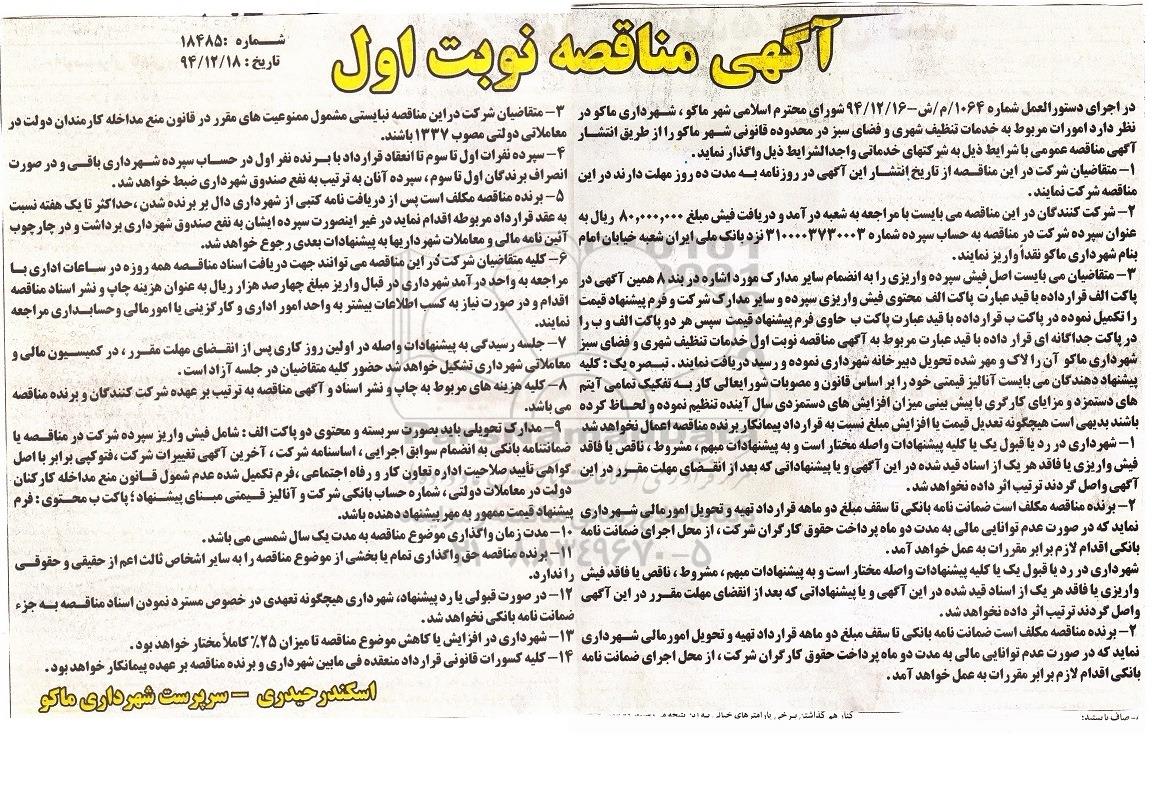 آگهی مناقصه نوبت اول
شماره : ۱۸۴۸۵
تاریخ : ۹۴/۱۲/۱۸
در اجرای دستورالعمل شماره ۱۰۶۴/م/ش-۹۴/۱۲/۱۶ شورای محترم اسلامی شهر ماکو ، شهرداری ماکو در
نظر دارد امورات مربوط به خدمات تنظیف شهری و فضای سبز در محدوده قانونی شهر ماکو را از طریق انتشار
آگهی مناقصه عمومی با شرایط ذیل به شرکتهای خدماتی واجدالشرایط ذیل واگذار نماید .
۱- متقاضیان شرکت در این مناقصه از تاریخ انتشار این آگهی در روزنامه به مدت ده روز مهلت دارند در این
مناقصه شرکت نمایند.
۲- شرکت کنندگان در این مناقصه می بایست با مراجعه به شعبه درآمد و دریافت فیش مبلغ ۸۰,۰۰۰,۰۰۰ ریال به
عنوان سپرده شرکت در مناقصه به حساب سپرده شماره ۳۱۰۰۰۰۳۷۳۰۰۰۳ نزد بانک ملی ایران شعبه خیابان امام
بنام شهرداری ماکو نقداً واریز نمایند.
۳- متقاضیان می بایست اصل فیش سپرده واریزی را به انضمام سایر مدارک مورد اشاره در بند ۸ همین آگهی در
پاکت الف قرار داده با قید عبارت پاکت الف محتوی فیش واریزی سپرده و سایر مدارک شرکت و فرم پیشنهاد قیمت
را تکمیل نموده در پاکت ب قرار داده با قید عبارت پاکت ب حاوی فرم پیشنهاد قیمت سپس هر دو پاکت الف و ب را
در پاکت جداگانه ای قرار داده با قید عبارت مربوط به آگهی مناقصه نوبت اول خدمات تنظیف شهری و فضای سبز
شهرداری ماکو آن را لاک و مهر شده تحویل دبیرخانه شهرداری نموده و رسید دریافت نمایند . تبصره یک : کلیه
پیشنهاد دهندگان می بایست آنالیز قیمتی خود را بر اساس قانون و مصوبات شورایعالی کار به تفکیک تمامی آیتم
های دستمزد و مزایای کارگری با پیش بینی میزان افزایش های دستمزدی سال آینده تنظیم نموده و لحاظ کرده
باشند بدیهی است هیچگونه تعدیل قیمت یا افزایش مبلغ نسبت به قرارداد پیمانکار برنده مناقصه اعمال نخواهد شد
۱- شهرداری در رد یا قبول یک یا کلیه پیشنهادات واصله مختار است و به پیشنهادات مبهم ، مشروط ، ناقص یا فاقد
فیش واریزی یا فاقد هر یک از اسناد قید شده در این آگهی و یا پیشنهاداتی که بعد از انقضای مهلت مقرر در این
آگهی واصل گردند ترتیب اثر داده نخواهد شد.
۲- برنده مناقصه مکلف است ضمانت نامه بانکی تا سقف مبلغ دو ماهه قرارداد تهیه و تحویل امور مالی شهرداری
نماید که در صورت عدم توانایی مالی به مدت دو ماه پرداخت حقوق کارگران شرکت ، از محل اجرای ضمانت نامه
بانکی اقدام لازم برابر مقررات به عمل خواهد آمد.
شهرداری در رد یا قبول یک یا کلیه پیشنهادات واصله مختار است و به پیشنهادات مبهم ، مشروط ، ناقص یا فاقد فیش
واریزی یا فاقد هر یک از اسناد قید شده در این آگهی و یا پیشنهاداتی که بعد از انقضای مهلت مقرر در این آگهی
واصل گردند ترتیب اثر داده نخواهد شد .
۲- برنده مناقصه مکلف است ضمانت نامه بانکی تا سقف مبلغ دو ماهه قرارداد تهیه و تحویل امور مالی شهرداری
نماید که در صورت عدم توانایی مالی به مدت دو ماه پرداخت حقوق کارگران شرکت ، از محل اجرای ضمانت نامه
بانکی اقدام لازم برابر مقررات به عمل خواهد آمد .
۳- متقاضیان شرکت در این مناقصه نبایستی مشمول ممنوعیت های مقرر در قانون منع مداخله کارمندان دولت در
معاملاتی دولتی مصوب ۱۳۳۷ باشند.
۴- سپرده نفرات اول تا سوم تا انعقاد قرارداد با برنده نفر اول در حساب سپرده شهرداری باقی و در صورت
انصراف برندگان اول تا سوم ، سپرده آنان به ترتیب به نفع صندوق شهرداری ضبط خواهد شد.
۵- برنده مناقصه مکلف است پس از دریافت نامه کتبی از شهرداری دال بر برنده شدن ،حداکثر تا یک هفته نسبت
به عقد قرارداد مربوطه اقدام نماید در غیر اینصورت سپرده ایشان به نفع صندوق شهرداری برداشت و در چارچوب
آئین نامه مالی و معاملات شهرداریها به پیشنهادات بعدی رجوع خواهد شد.
۶- کلیه متقاضیان شرکت در این مناقصه می توانند جهت دریافت اسناد مناقصه همه روزه در ساعات اداری با
مراجعه به واحد درآمد شهرداری در قبال واریز مبلغ چهارصد هزار ریال به عنوان هزینه چاپ و نشر اسناد مناقصه
اقدام و در صورت نیاز به کسب اطلاعات بیشتر به واحد امور اداری و کارگزینی یا امور مالی و حسابداری مراجعه
نمایند.
۷- جلسه رسیدگی به پیشنهادات واصله در اولین روز کاری پس از انقضای مهلت مقرر ، در کمیسیون مالی و
معاملاتی شهرداری تشکیل خواهد شد حضور کلیه متقاضیان در جلسه آزاد است .
۸- کلیه هزینه های مربوط به چاپ و نشر اسناد و آگهی مناقصه به ترتیب بر عهده شرکت کنندگان و برنده مناقصه
می باشد.
۹- مدارک تحویلی باید بصورت سربسته و محتوی دو پاکت الف : شامل فیش واریز سپرده شرکت در مناقصه یا
ضمانتنامه بانکی به انضمام سوابق اجرایی ، اساسنامه شرکت ، آخرین آگهی تغییرات شرکت ،فتوکپی برابر با اصل
گواهی تأیید صلاحیت اداره تعاون کار و رفاه اجتماعی ،فرم تکمیل شده عدم شمول قانون منع مداخله کارکنان
دولت در معاملات دولتی ، شماره حساب بانکی شرکت و آنالیز قیمتی مبنای پیشنهاد؛ پاکت ب محتوی : فرم
پیشنهاد قیمت ممهور به مهر پیشنهاد دهنده باشد.
۱۰- مدت زمان واگذاری موضوع مناقصه به مدت یک سال شمسی می باشد .
۱۱- برنده مناقصه حق واگذاری تمام یا بخشی از موضوع مناقصه را به سایر اشخاص ثالث اعم از حقیقی و حقوقی
را ندارد.
۱۲- در صورت قبولی یا رد پیشنهاد، شهرداری هیچگونه تعهدی در خصوص مسترد نمودن اسناد مناقصه به جزء
ضمانت نامه بانکی نخواهد شد .
۱۳- شهرداری در افزایش یا کاهش موضوع مناقصه تا میزان ۲۵٪ کاملاً مختار خواهد بود .
۱۴- کلیه کسورات قانونی قرارداد منعقده فی مابین شهرداری و برنده مناقصه بر عهده پیمانکار خواهد بود .
اسکندر حیدری - سرپرست شهرداری ماکو